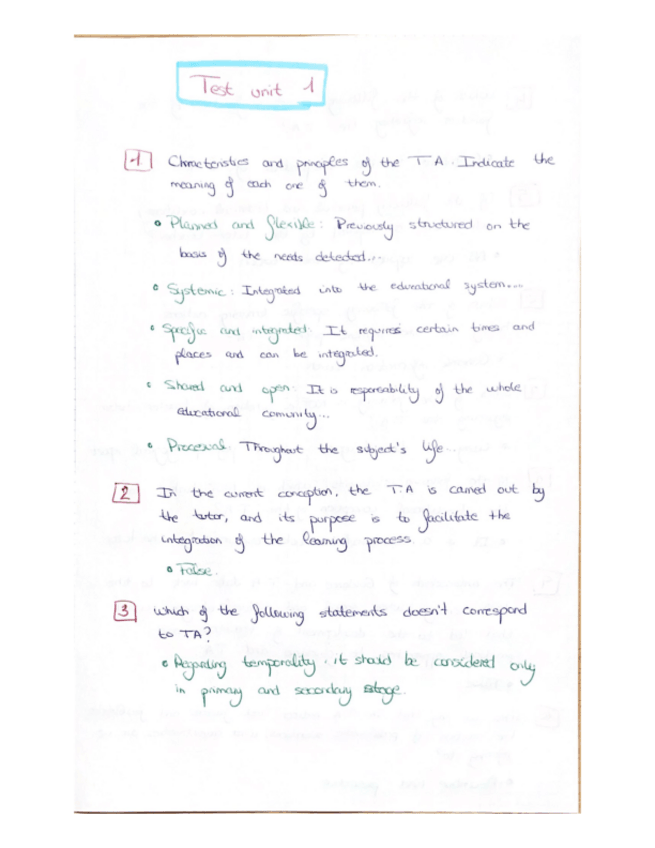 Test unit 1
1 Characteristics and principles of the TA. Indicate the
meaning of each one of them.
• Planned and flexible: Previously structured on the
basis of the needs detected...
• Systemic: Integrated into the educational system....
• Specific and integrated: It requires certain times and
places and can be integrated.
• Shared and open: It is responsability of the whole
educational comunity...
• Procesual: Throughout the subject's life...
2 In the current conception, the T.A is carried out by
the tutor, and its purpose is to facilitate the
integration of the learning process.
• False.
3 which of the following statements doesn't correspond
to TA?
• Regarding temporality, it should be considered only
in primary and secondary stage.